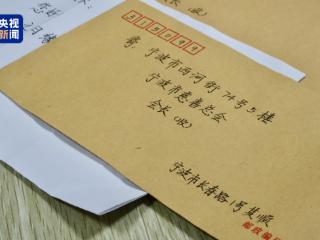 央视
新闻
长(收)
315099
寄:宁波市西河街74号5楼
宁波市慈善总会
会长(收)
宁波市长春路1号复顺
邮政编